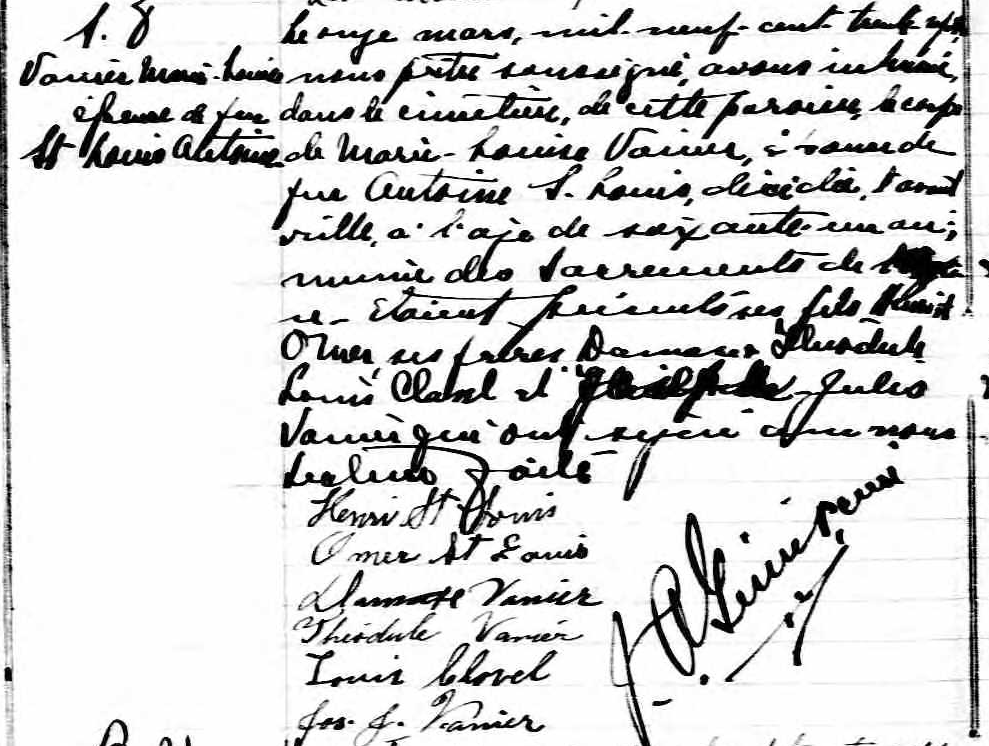 S. 8
Vanier Marie-Louise
épouse de feu
St Louis Antoine
Le onze mars, mil-neuf-cent trente-sept,
nous prêtre soussigné, avons inhumé,
dans le cimetière, de cette paroisse, le corps
de Marie-Louise Vanier, épouse de
feu Antoine S. Louis, décédée, l'avant
veille, à l'age de soixante-un an;
munie des Sacrements de
re- Etaient présents ses fils Henri et
Omer, ses frères Damase, Théodule
Louis Clavel et Jules
Vanier qui ont signé avec nous
lecture faite
Henri St Louis
Omer St Louis
Damase Vanier
Théodule Vanier
Louis Clavel
Jos. J. Vanier
J. A.